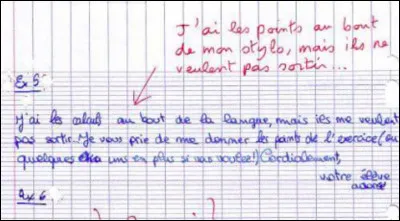 J'ai les points au bout
de mon stylo, mais ils ne
veulent pas sortir...
Ex 5
J'ai les calculs au bout de la langue, mais ils ne veulent
pas sortir. Je vous prie de me donner les points de l'exercice (ou
quelques uns en plus si vous voulez!) Cordialement,
votre élève
adoré
Ex 6